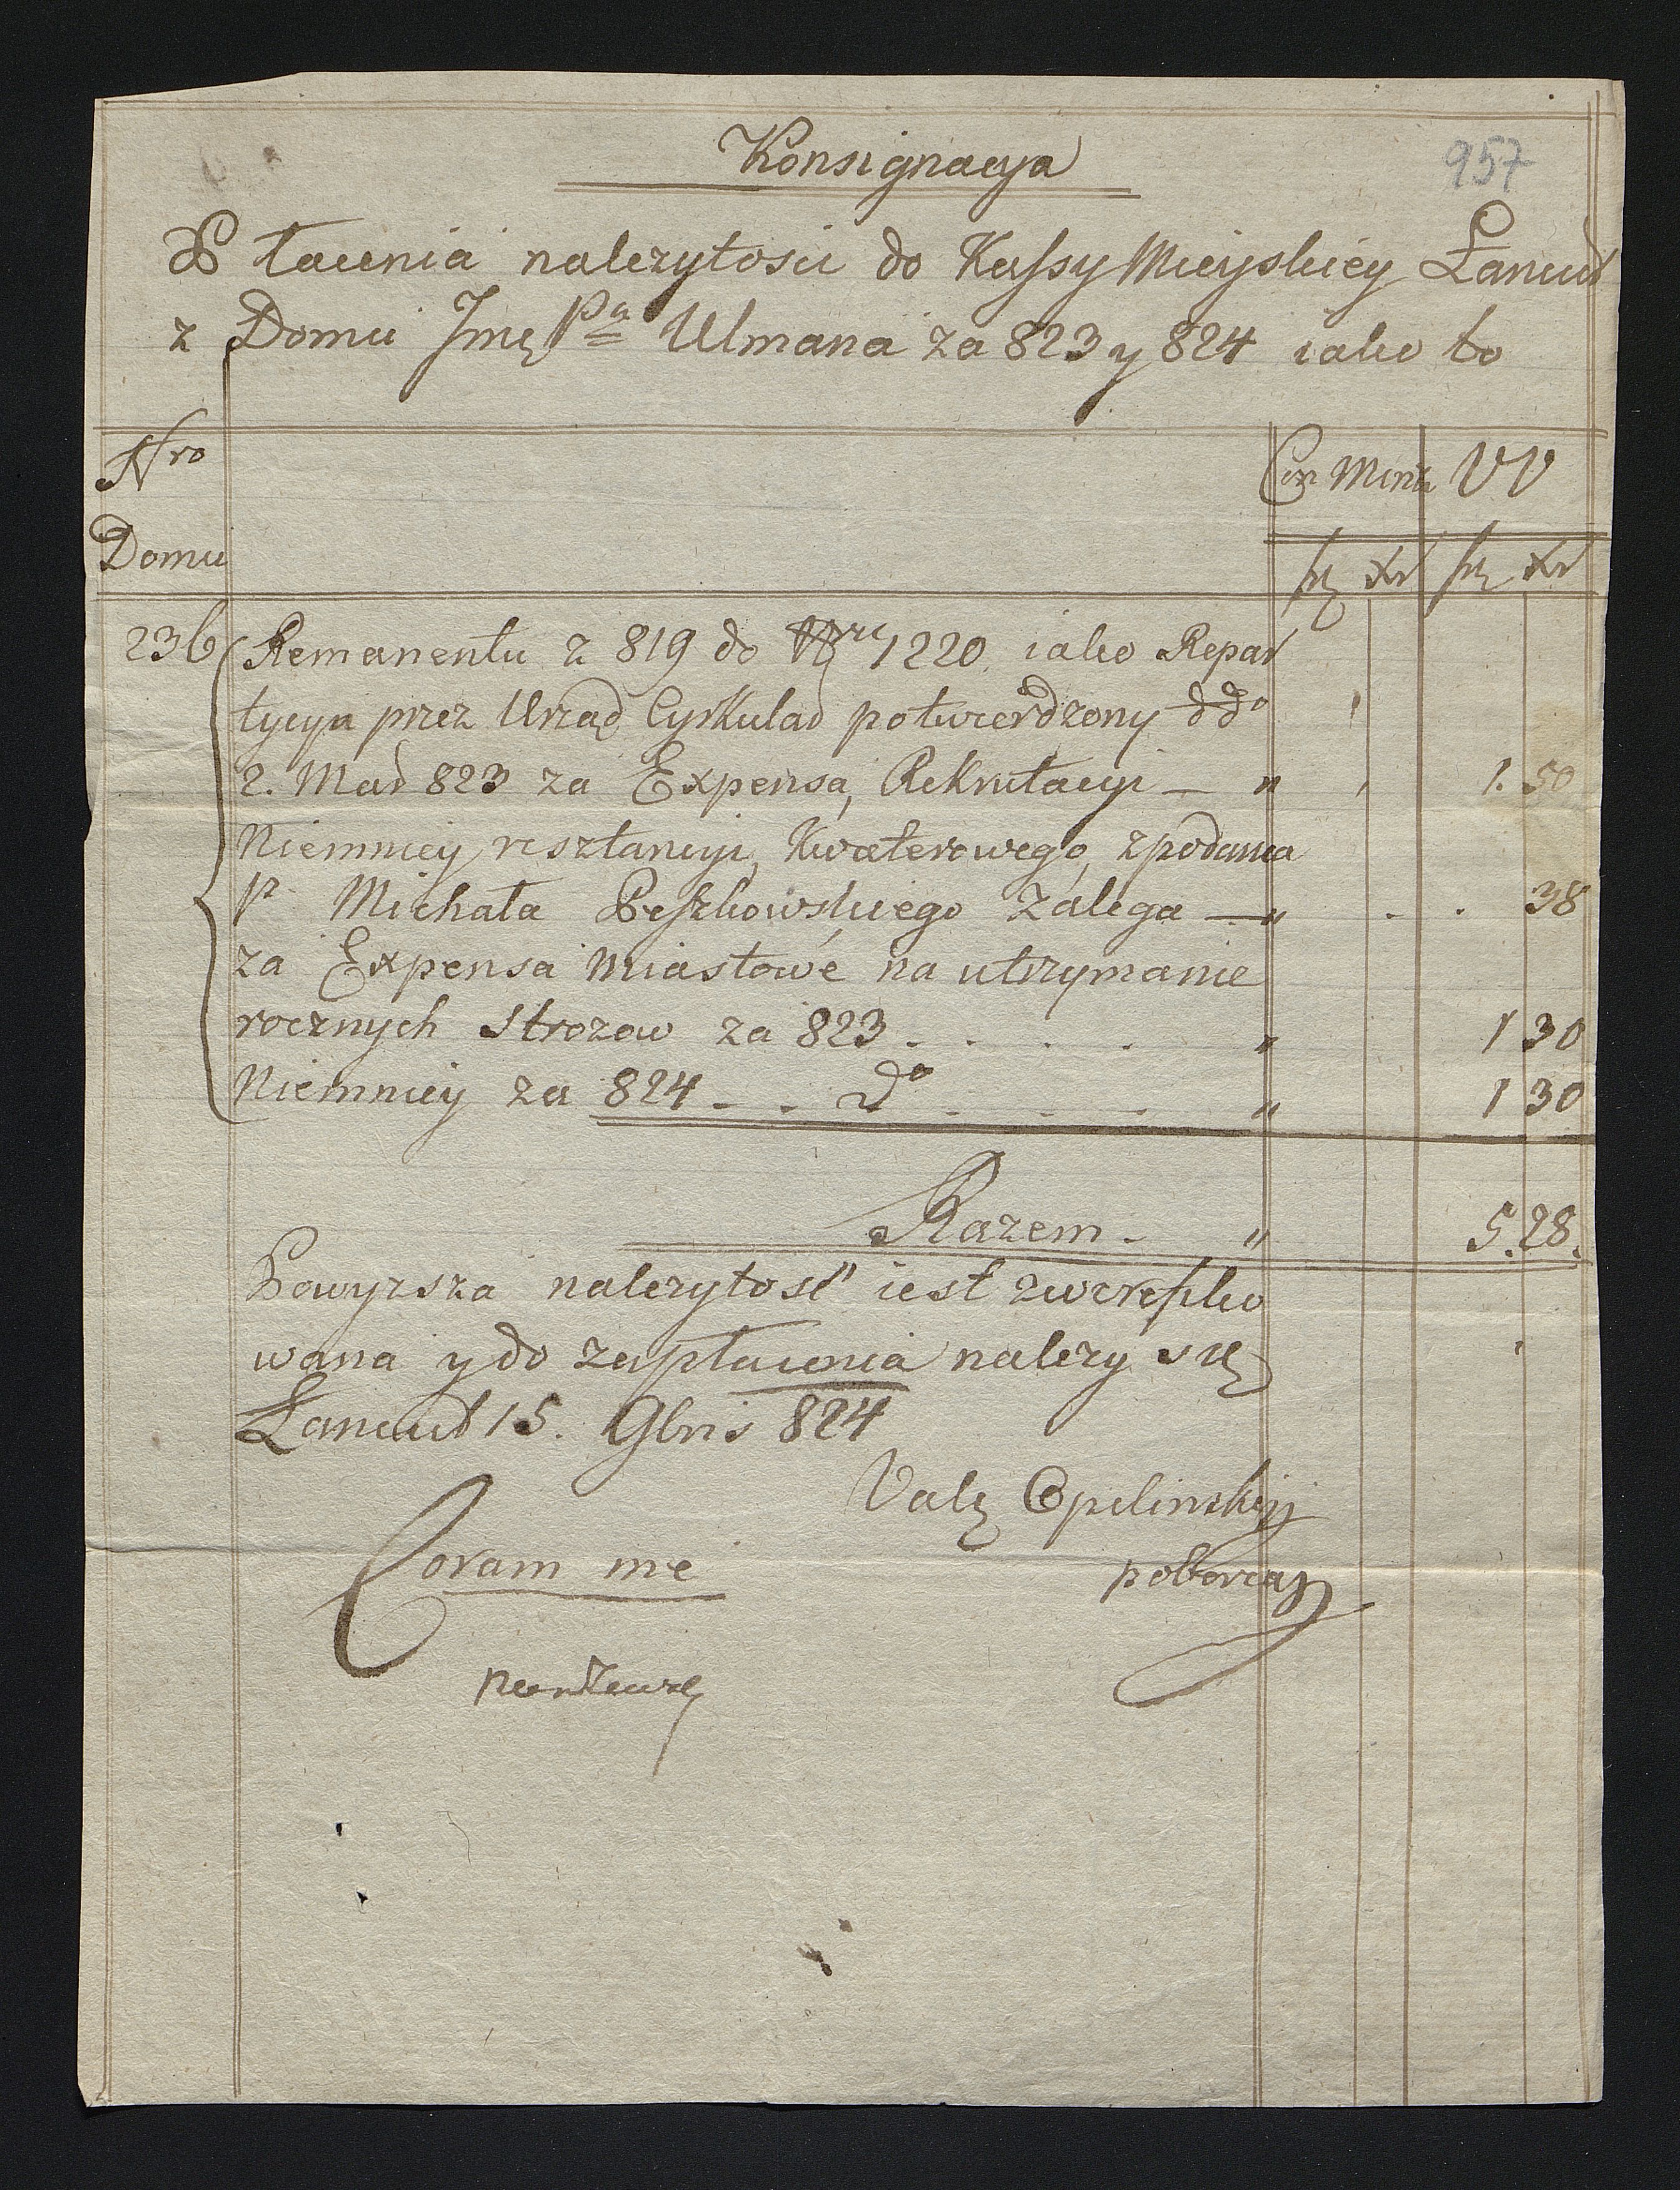 Konsignacya
957
Płacenia nalezytosci do Kassy Mieyskiey Łancut
z Domu Jmę Pa Ulmana za 823 y 824 iako to
Nro Domu
Con Mink VV
frl Xr frl Xr
236 Remanentu z 819 do Nre 1220 iako Repar
tycya przez Urzad Cyrkular potwierdzony ddo
2. Mar 823 za Expensa, Rekrutacyi — " 1. 50
Niemniey resztancyi, Kwaterowego, z podania
p Michała Peszkowskiego zalega — " . . 38
za Expensa miastowe na utrzymanie
rocznych Strozow za 823 . . . . " 1 30
Niemniey za 824 - . do . . . " 1 30
Razem - " 5.28.
Powyzsza nalezytość iest zwerefiko
wana y do zapłacenia nalezy się
Łancut 15. 9bris 824
Valę Opelinskij
poborca
Coram me